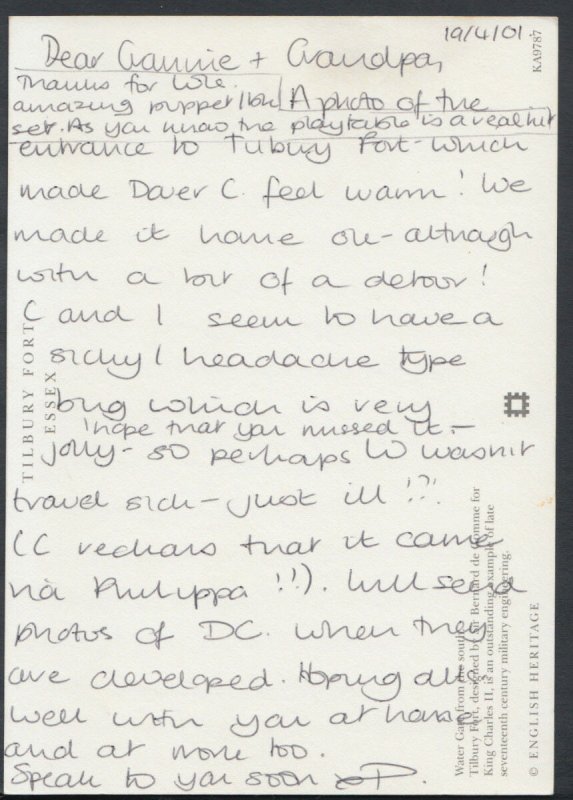 19/4/01.
Dear Grannie + Grandpa,
Thanks for
amazing puppet A photo of the
set. As you know the playtable is a real hit
entrance to Tilbury Fort - which
made Dover C. feel warm! We
made it home ok - although
with a bit of a detour!
C and I seem to have a
sicky / headache type
bug which is very
I hope that you missed it -
jolly - so perhaps W wasn't
travel sick - just ill!?!
(C reckons that it came
via Philippa!!). Will send
photos of DC. when they
are developed. Hoping all's
well with you at home
and at more too.
Speak to you soon
KA9787
TILBURY FORT
ESSEX
Water Gate from the south.
Tilbury Fort, designed by Sir Bernard de Gomme for
King Charles II, is an outstanding example of late
seventeenth century military engineering.
© ENGLISH HERITAGE